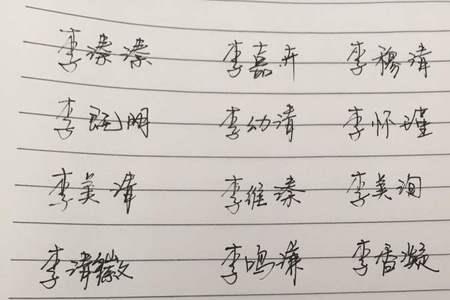 李溱溱 李嘉卉 李穆清
李 明 李幼清 李怀瑾
李美 李维溱 李美洵
李 徽 李鸣谦 李香凝